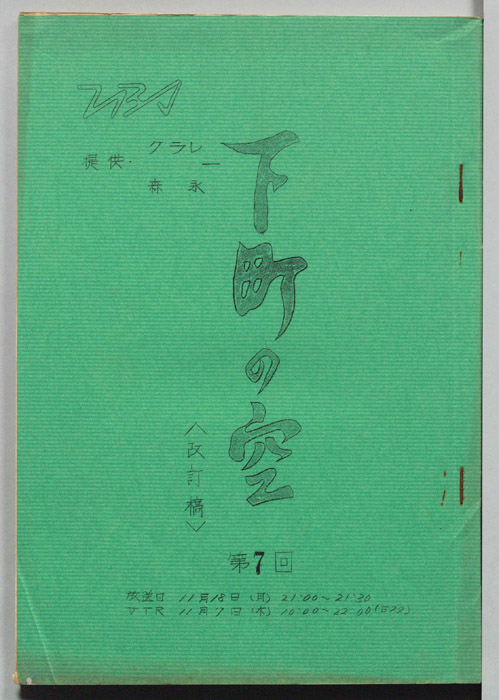 TBS
提供・
クラレ
森永
下町の空
〈改訂稿〉
第7回
放送日 11月18日（月） 21:00〜21:30
VTR 11月7日（木） 10:00〜22:00